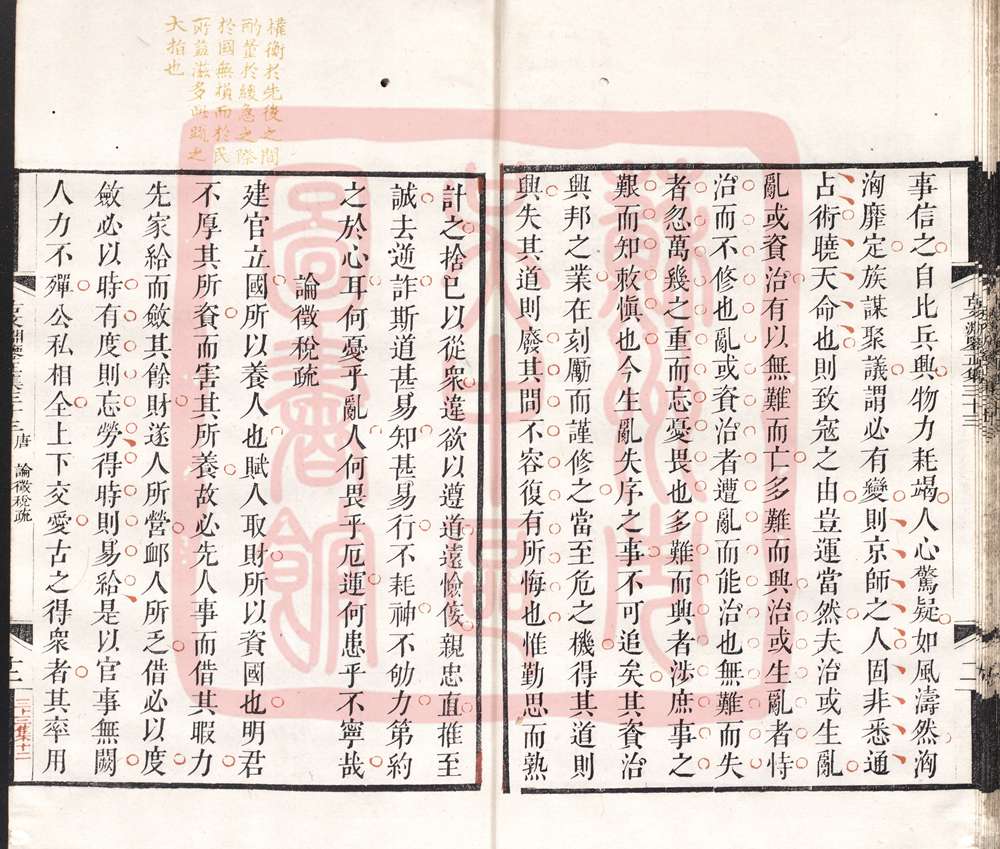 事信之自比兵興物力耗竭人心驚疑如風濤然洶
洶靡定族謀聚議謂必有變則京師之人固非悉通
占術曉天命也則致寇之由豈運當然夫治或生亂
亂或資治有以無難而亡多難而興治或生亂者恃
治而不修也亂或資治者遭亂而能治也無難而失
者忽萬幾之重而忘憂畏也多難而興者涉庶事之
艱而知敕愼也今生亂失序之事不可追矣其資治
興邦之業在刻勵而謹修之當至危之機得其道則
興失其道則廢其間不容復有所悔也惟勤思而熟
計之捨己以從衆違欲以遵道遠憸佞親忠直推至
誠去逆詐斯道甚易知甚易行不耗神不劬力第約
之於心耳何憂乎亂人何畏乎厄運何患乎不寧哉
論徵稅疏
建官立國所以養人也賦人取財所以資國也明君
不厚其所資而害其所養故必先人事而借其暇力
先家給而斂其餘財遂人所營䘏人所乏借必以度
斂必以時有度則忘勞得時則易給是以官事無闕
人力不殫公私相全上下交愛古之得衆者其率用
權衡於先後之間
酌量於緩急之際
於國無損而於民
所益滋多此疏之
大指也
古文淵鑒正集三十三
唐 論徵稅疏
十二
三十三集十二